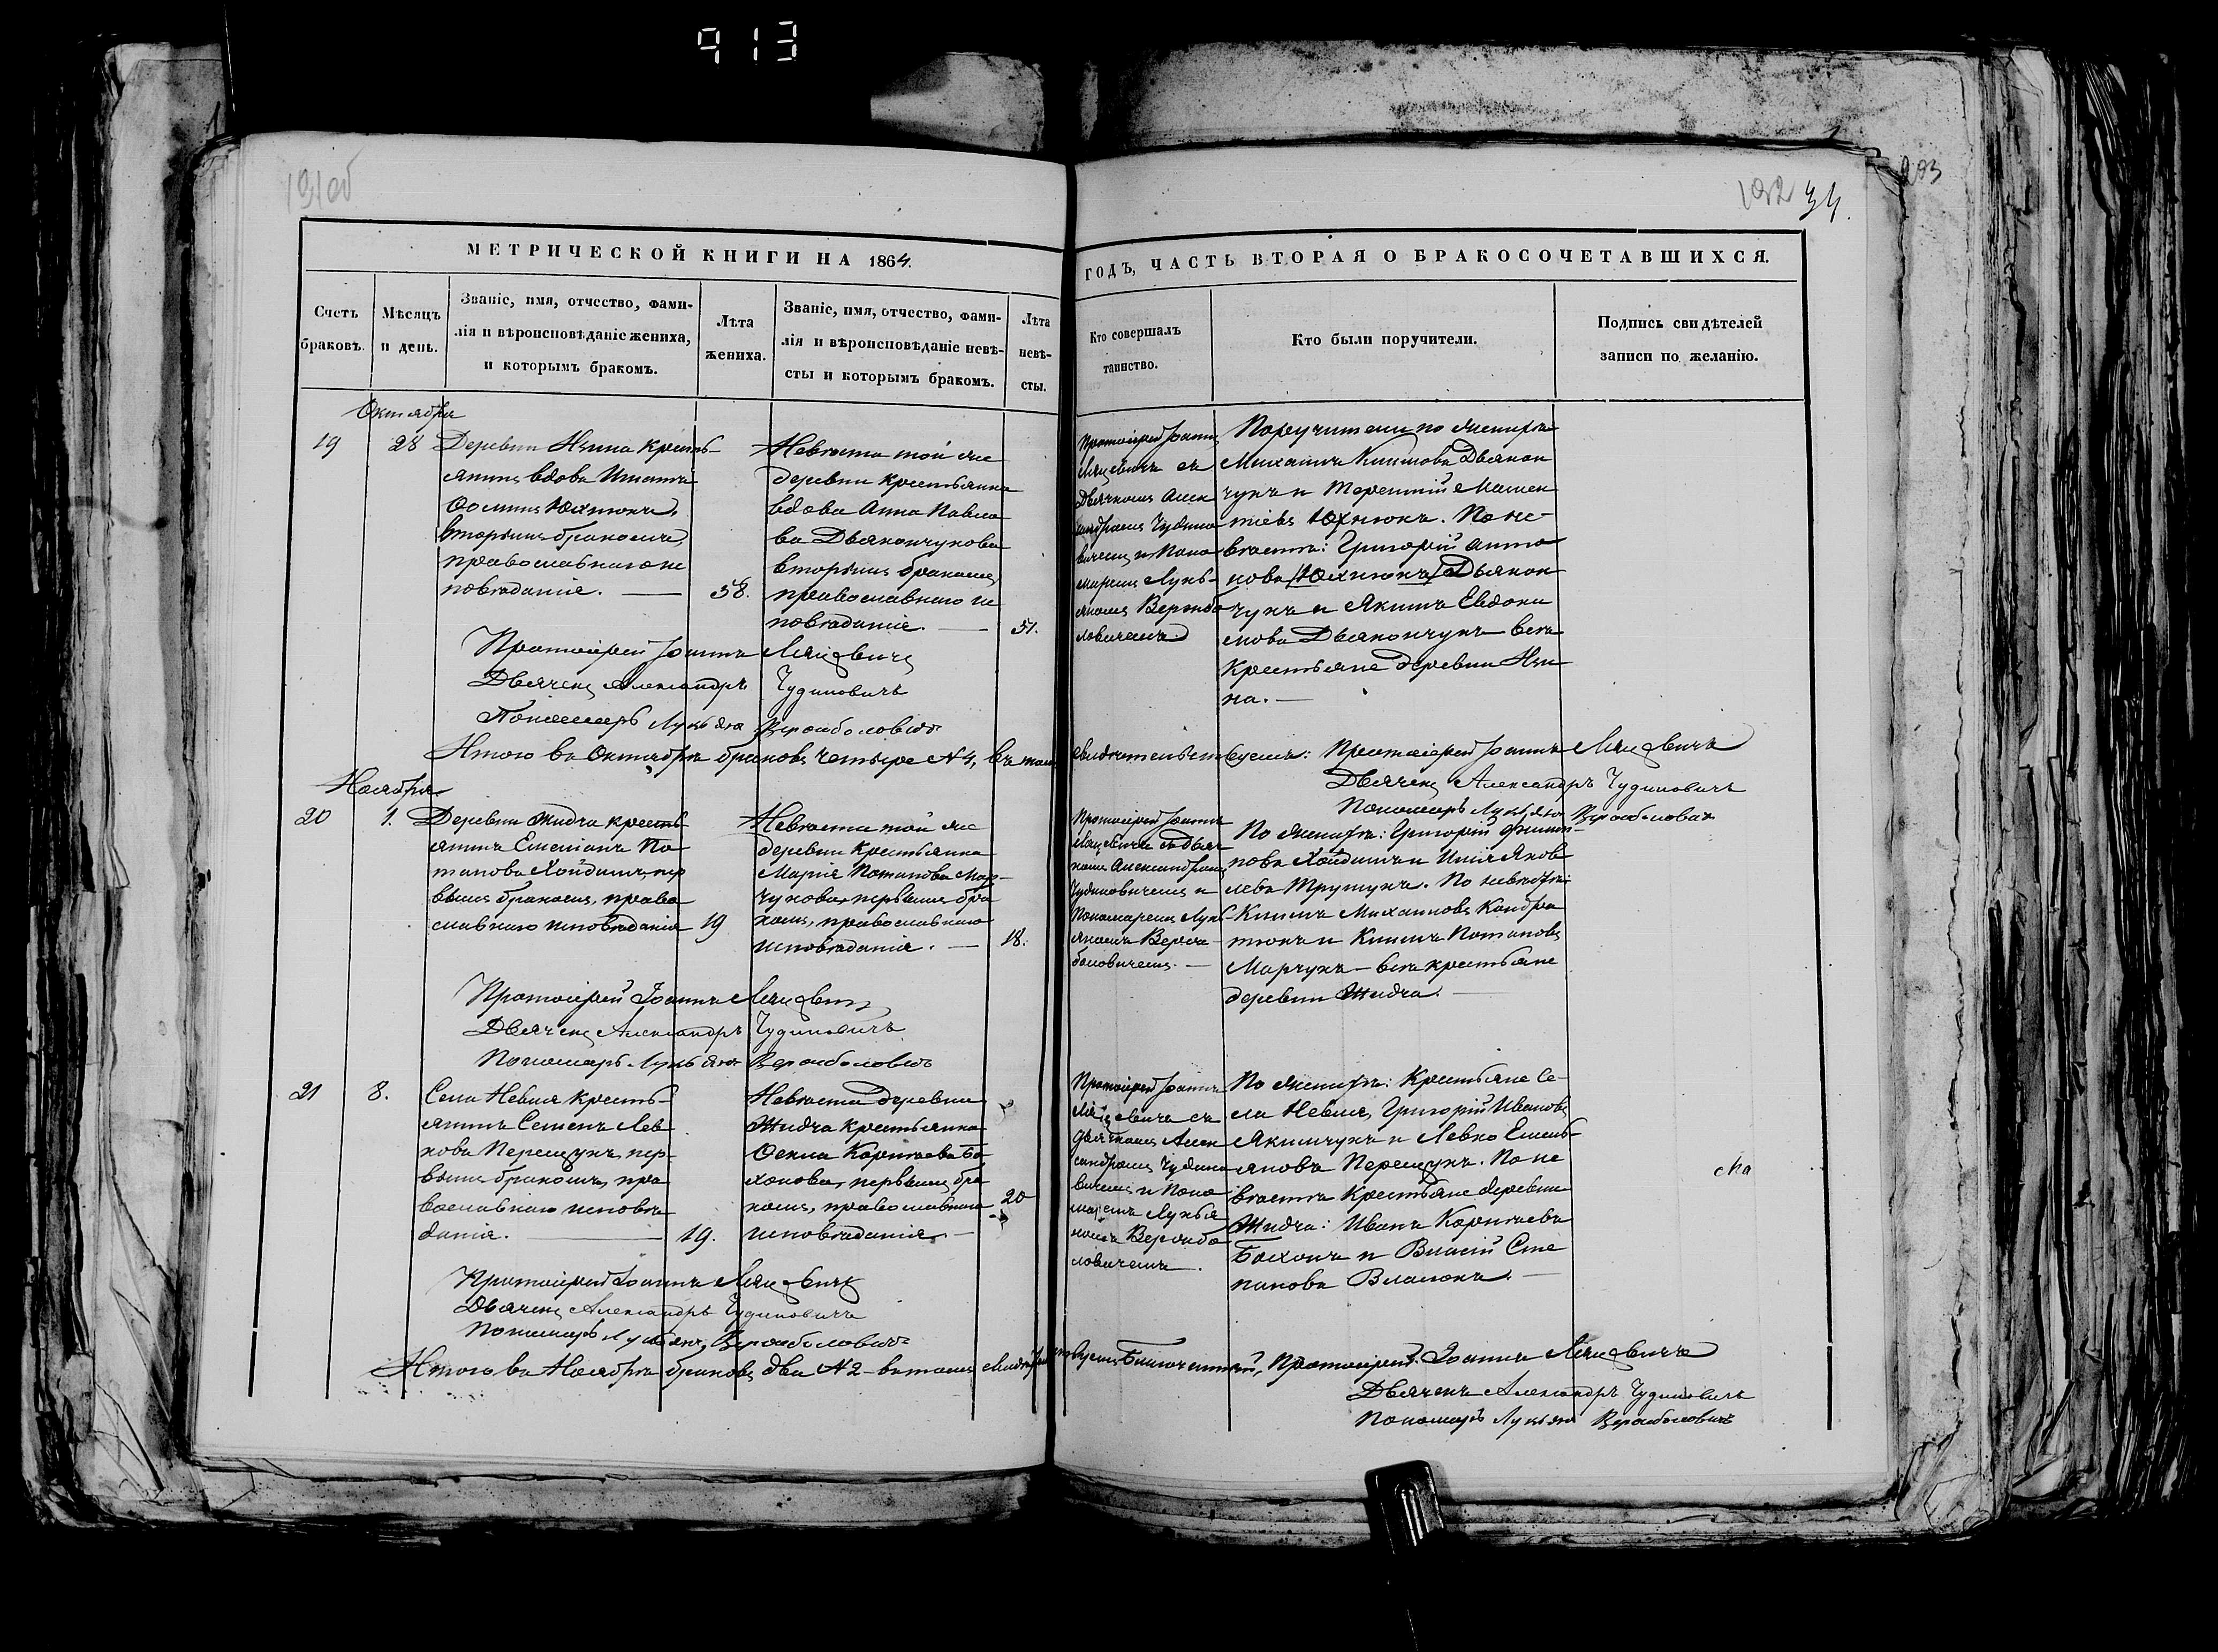 913
191об
192 34.
203
МЕТРИЧЕСКОЙ КНИГИ НА 1864.
ГОДЪ, ЧАСТЬ ВТОРАЯ О БРАКОСОЧЕТАВШИХСЯ.
Счетъ
браковъ.
Мѣсяцъ
и день.
Званіе, имя, отчество, фами-
лія и вѣроисповѣданіе жениха,
и которымъ бракомъ.
Лѣта
жениха.
Званіе, имя, отчество, фами-
лія и вѣроисповѣданіе невѣ-
сты и которымъ бракомъ.
Лѣта
невѣ-
сты.
Кто совершалъ
таинство.
Кто были поручители.
Подпись свидѣтелей
записи по желанію.
Октября
19
28
Деревни кресть-
янинъ вдовъ Игнатій
Юхнюкъ,
вторымъ бракомъ,
православнаго ис
повѣданія.
58.
Невѣста той же
деревни крестьянка
вдова Анна Павло
ва Дьякончукова
вторымъ бракомъ
православнаго ис
повѣданія.
51.
Протоіерей Іоаннъ
съ
Дьячкомъ Алек
сандромъ Чудино
вичемъ и Поно
маремъ Лукь-
яномъ
Поручители по женихѣ
Михаилъ Климовъ Дьякон
чукъ и Терентій Матѳѣ
тіевъ Юхнюкъ. По не-
вѣстѣ: Григорій Анто
новъ (Юхнюкъ) Дьякон
чукъ и Якимъ Евдоки
мовъ Дьякончукъ всѣ
крестьяне деревни
на.
Протоіерей Іоаннъ
Дьячекъ Александръ Чудиновичъ
Пономарь Лукьянъ
Итого въ Октябрѣ браковъ четыре №4, въ томъ свидѣтельствуемъ: Протоіерей Іоаннъ
Дьячекъ Александръ Чудиновичъ
Пономарь Лукьянъ
Ноября
20
1.
Деревни Жидча кресть
янинъ Емеліанъ По
таповъ пер
вымъ бракомъ, право
славнаго исповѣданія
19
Невѣста той же
деревни крестьянка
Марія Потапова Мар-
чукова, первымъ бра
комъ, православнаго
исповѣданія.
18.
Протоіерей Іоаннъ
съ Дьяч
комъ Александромъ
Чудиновичемъ и
Пономаремъ Лукь-
яномъ
По женихѣ: Григорій Филип-
повъ и Илія Яков
левъ По невѣстѣ:
Климъ Михаиловъ Кондра
тюкъ и Климъ Потаповъ
Марчукъ – всѣ крестьяне
деревни Жидча.
Протоіерей Іоаннъ
Дьячекъ Александръ Чудиновичъ
Пономарь Лукьянъ
21
8.
Села Невля кресть-
янинъ Семенъ Лев
ковъ пер-
вымъ бракомъ, пра
вославнаго исповѣ
данія.
19.
Невѣста деревни
Жидча крестьянка
Ѳекла Корнѣева Ба-
хонова, первымъ бра
комъ, православнаго
исповѣданія.
20
Протоіерей Іоаннъ
съ
дьячкомъ Алек
сандромъ Чудино
вичемъ и Поно
маремъ Лукья
номъ
По женихѣ: Крестьяне Се-
ла Невля, Григорій Ивановъ
Якимчукъ и Левко Емель-
яновъ По не
вѣстѣ крестьяне деревни
Жидча: Иванъ Корнѣевъ
Бахонъ и Власій Сте
пановъ Власюкъ.
Протоіерей Іоаннъ
Дьячекъ Александръ Чудиновичъ
Пономарь Лукьянъ
Итого въ Ноябрѣ браковъ два №2 – въ томъ Протоіерей Іоаннъ
Дьячекъ Александръ Чудиновичъ
Пономарь Лукьянъ